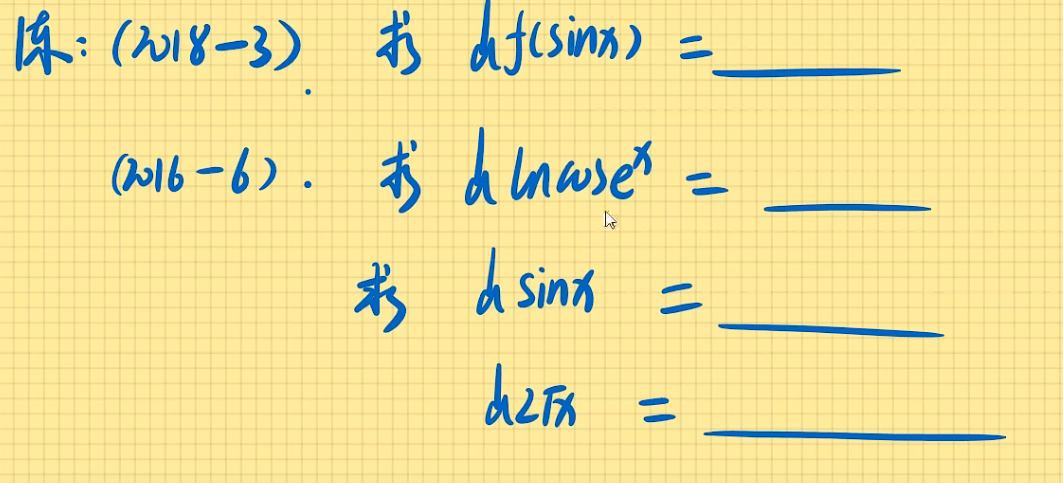 练: (2018-3). 求 df(sinx) = ______
(2016-6). 求 d ln cos eˣ = ______
求 d sinx = ______
d2√x = ______